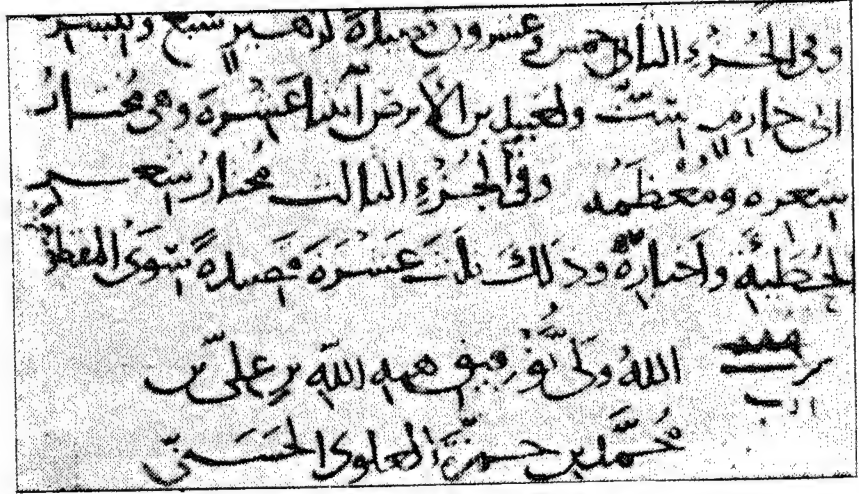 وفي الجزء الثاني خمس وعشرون قصيدة لزهير سبع ولبشر
ابن أبي خازم ست ولعبيد بن الأبرص اثنتا عشرة وهي مختار
شعره ومعظمه وفي الجزء الثالث مختار شعر
الحطيئة وأخباره وذلك ثلاث عشرة قصيدة سوى
الله ولي توفيق هبة الله بن علي بن
محمد بن حمزة العلوي الحسني